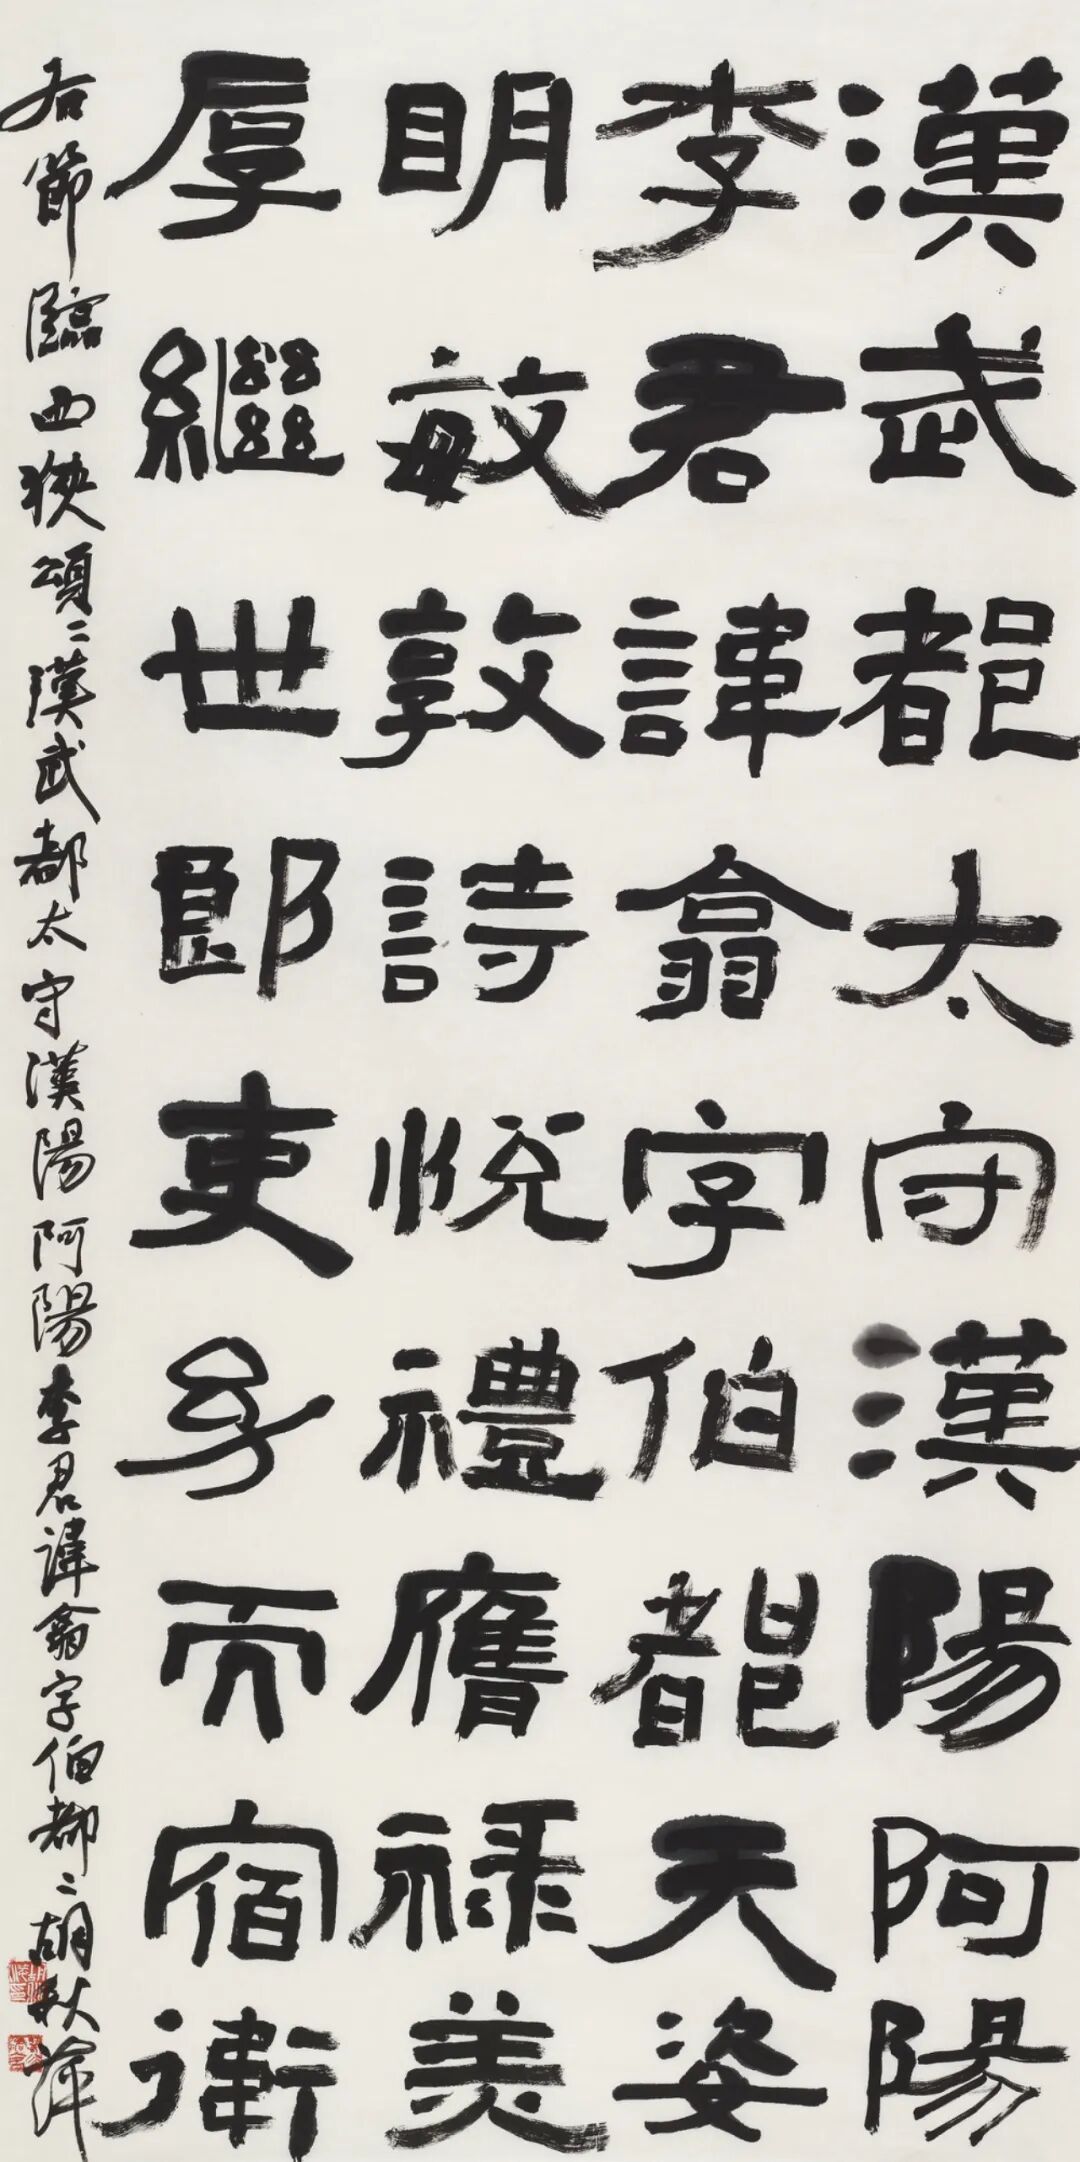 漢武都太守漢陽阿陽
李君諱翕字伯都天姿
明敏敦詩悅禮膺祿美
厚繼世郎吏幼而宿衛
右節臨西狹頌〻漢武都太守漢陽阿陽李君諱翕字伯都〻胡秋萍